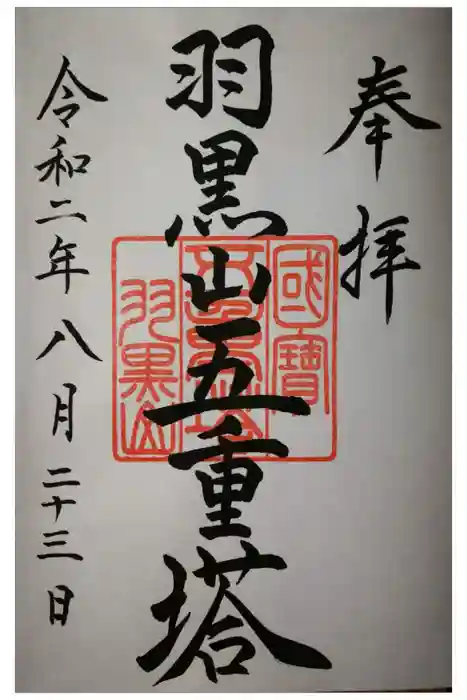 奉拝
羽黒山五重塔
國寶
五重塔
羽黒山
令和二年八月二十三日